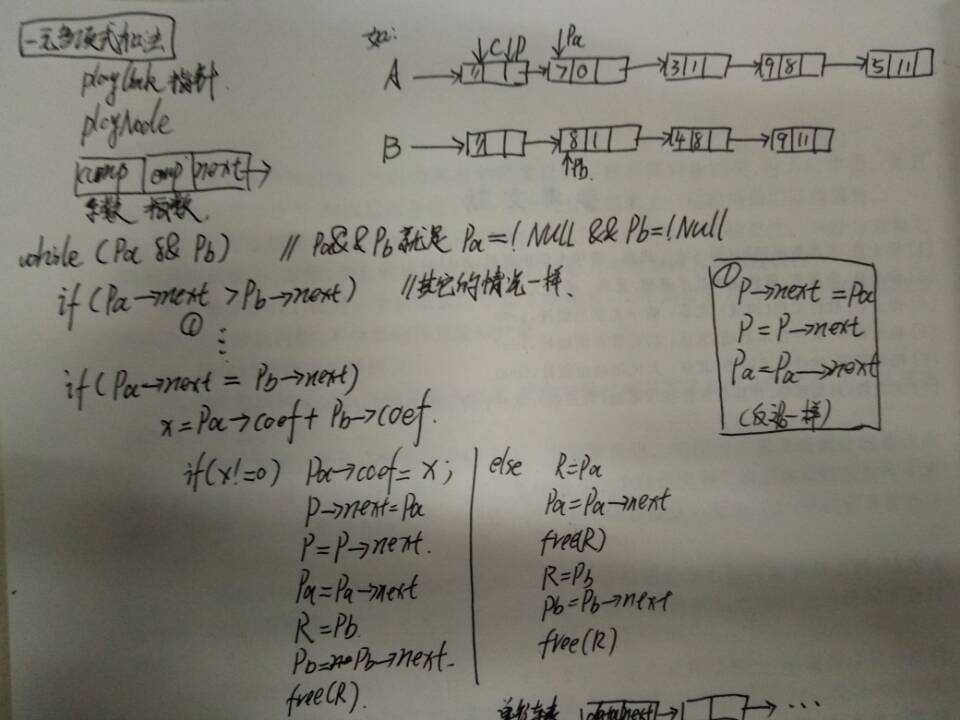 一元多项式加法
如:
C P Pa
A 7 0 3 1 9 8 5 11
指针
B 8 1 4 8 9 11
Pb
next
系数 指数.
while (Pa && Pb) // Pa&&Pb就是 Pa=!Null && Pb=!Null
if (Pa→next >Pb→next) //其它的情况一样、
①
⋮
if (Pa→next = Pb→next)
x=Pa→coef+Pb→coef.
① P→next=Pa
P=P→next
Pa=Pa→next
(反过一样)
if(x!=0) Pa→coef=x;
P→next=Pa
P=P→next.
Pa=Pa→next
R=Pb
Pb=Pb→next.
free(R).
else R=Pa
Pa=Pa→next
free(R)
R=Pb
Pb=Pb→next
free(R)
data next ...